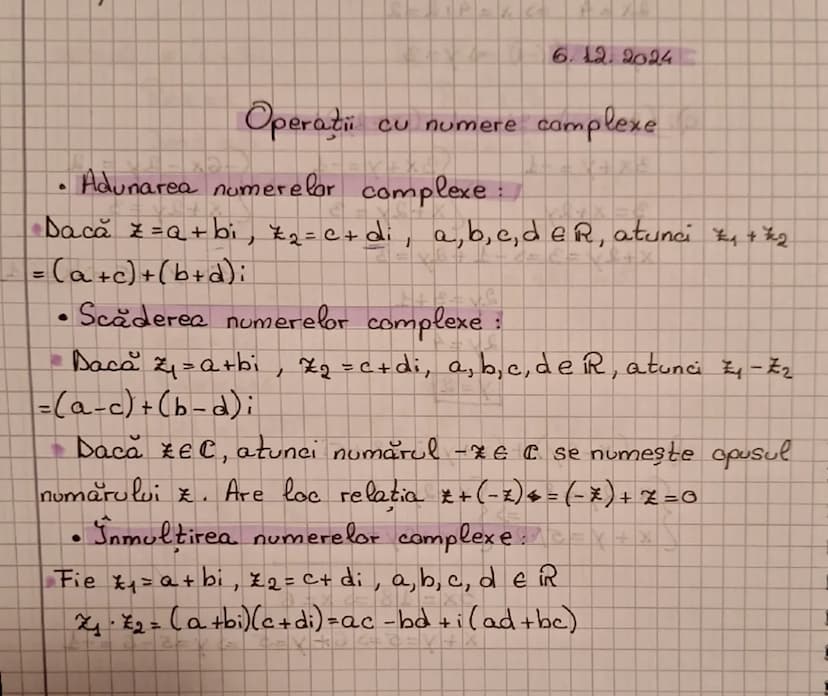 6.12.2024
Operații cu numere complexe
• Adunarea numerelor complexe:
Dacă z=a+bi, z₂=c+di, a,b,c,d∈ℝ, atunci z₁+z₂
=(a+c)+(b+d)i
• Scăderea numerelor complexe:
Dacă z₁=a+bi, z₂=c+di, a,b,c,d∈ℝ, atunci z₁-z₂
=(a-c)+(b-d)i
Dacă z∈ℂ, atunci numărul -z∈ℂ se numește opusul
numărului z. Are loc relația z+(-z)=(-z)+z=0
• Înmulțirea numerelor complexe:
Fie z₁=a+bi, z₂=c+di, a,b,c,d∈ℝ
z₁·z₂=(a+bi)(c+di)=ac-bd+i(ad+bc)